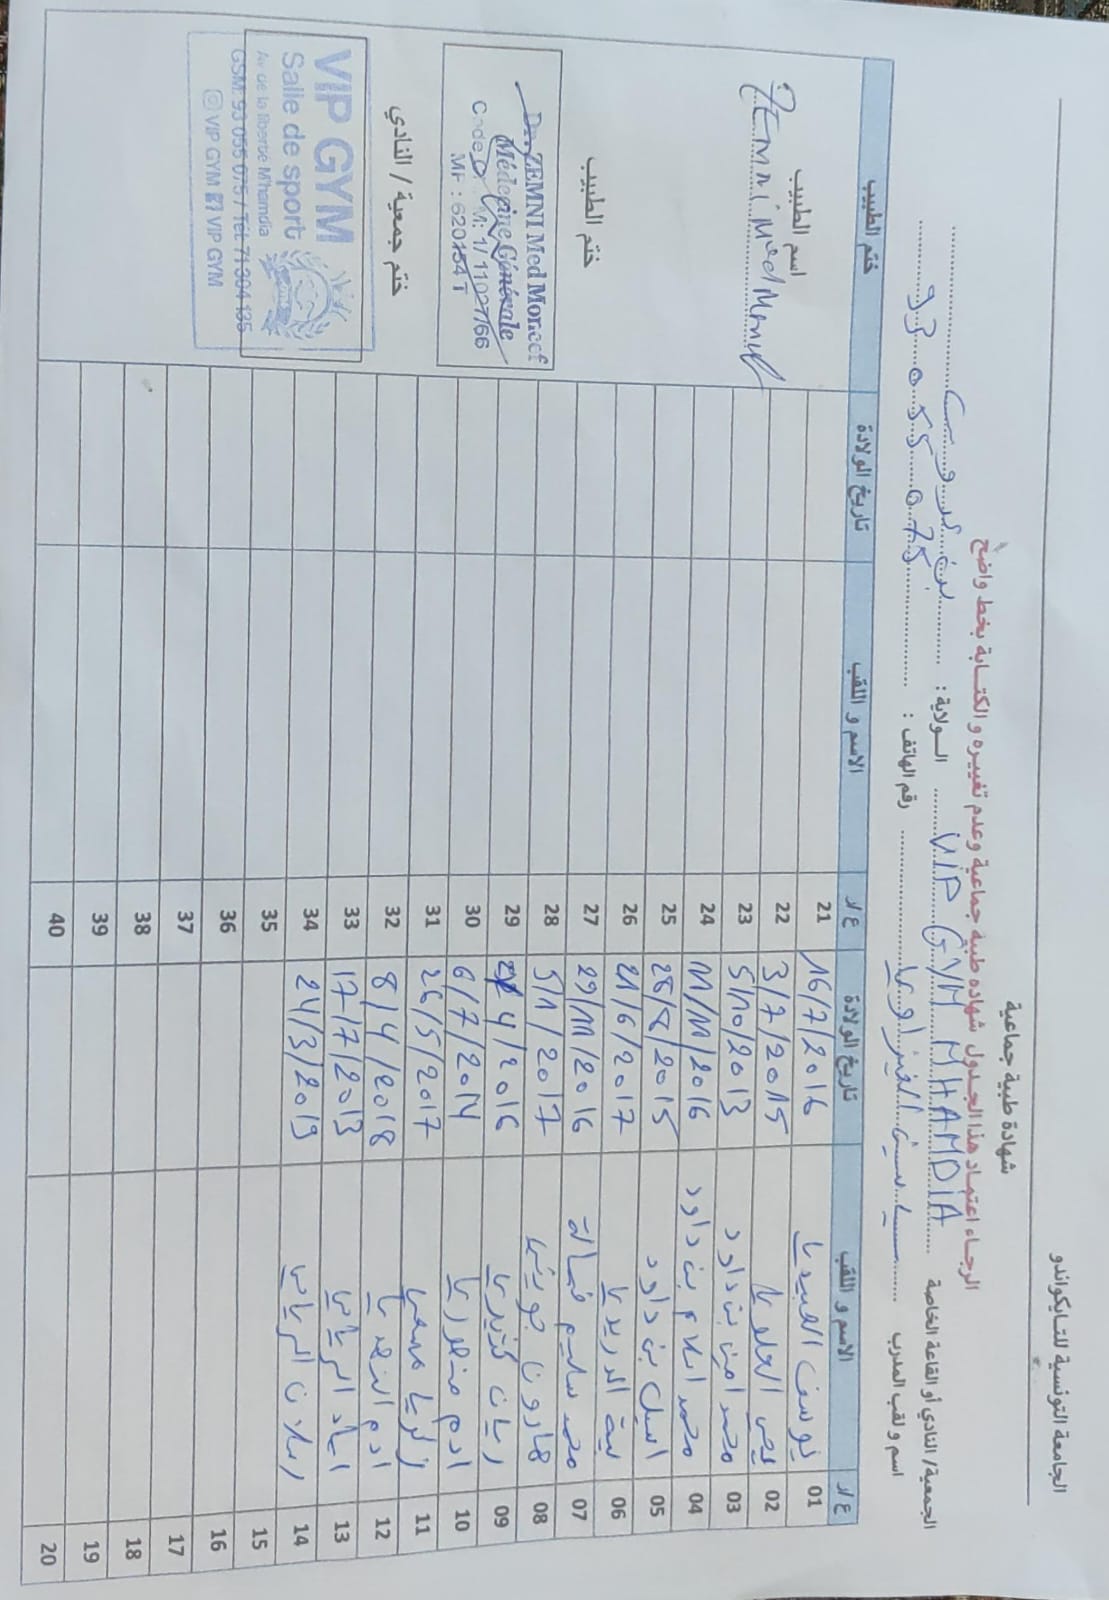 الجامعة التونسية للتايكواندو
شهادة طبية جماعية
الرجاء اعتماد هذا الجدول شهادة طبية جماعية وعدم تغييره والكتابة بخط واضح
الجمعية/ النادي أو القاعة الخاصة VIP GYM MHAMDIA الولاية : بن عروس
اسم و لقب المدرب ياسين الغيزاوي رقم الهاتف : 93 055 075
ع/ر الاسم و اللقب تاريخ الولادة ع/ر الاسم و اللقب تاريخ الولادة ختم الطبيب
01 يوسف العبيدي 16/7/2016 21
02 يحي العلوي 3/7/2015 22
03 محمد امين بن داود 5/10/2013 23
04 محمد اسلام بن داود 11/11/2016 24
05 اسيل بن داود 28/8/2015 25
06 الدريدي 21/6/2017 26
07 محمد سليم 29/11/2016 27
08 هارون جويني 5/1/2017 28
09 ريان 4/2016 29
10 ادم منصوري 6/7/2014 30
11 زكريا 26/5/2017 31
12 ادم 8/4/2018 32
13 اياد الرياحي 17/7/2013 33
14 رسلان الرياحي 24/3/2019 34
15 35
16 36
17 37
18 38
19 39
20 40
اسم الطبيب
Zemni Med Moncef
ختم الطبيب
Dr. ZEMNI Med Moncef
Médecine Générale
Code 1/ 11027/66
MF : 620154 T
ختم جمعية / النادي
VIP GYM
Salle de sport
Av de la liberté M'hamdia
GSM: 93 055 075 / Tél: 71 304 135
VIP GYM VIP GYM